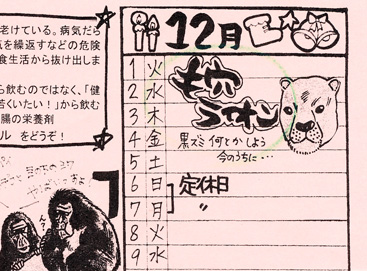 老けている。病気だら
を繰返すなどの危険
食生活から抜け出しま
ら飲むのではなく、「健
若くいたい！」から飲む
腸の栄養剤
ル をどうぞ！
12月
1 火
2 水
3 木
4 金 黒ズミ 何とかしよう
今のうちに・・・
5 土
6 日 定休日
7 月 〃
8 火
9 水
ライオン